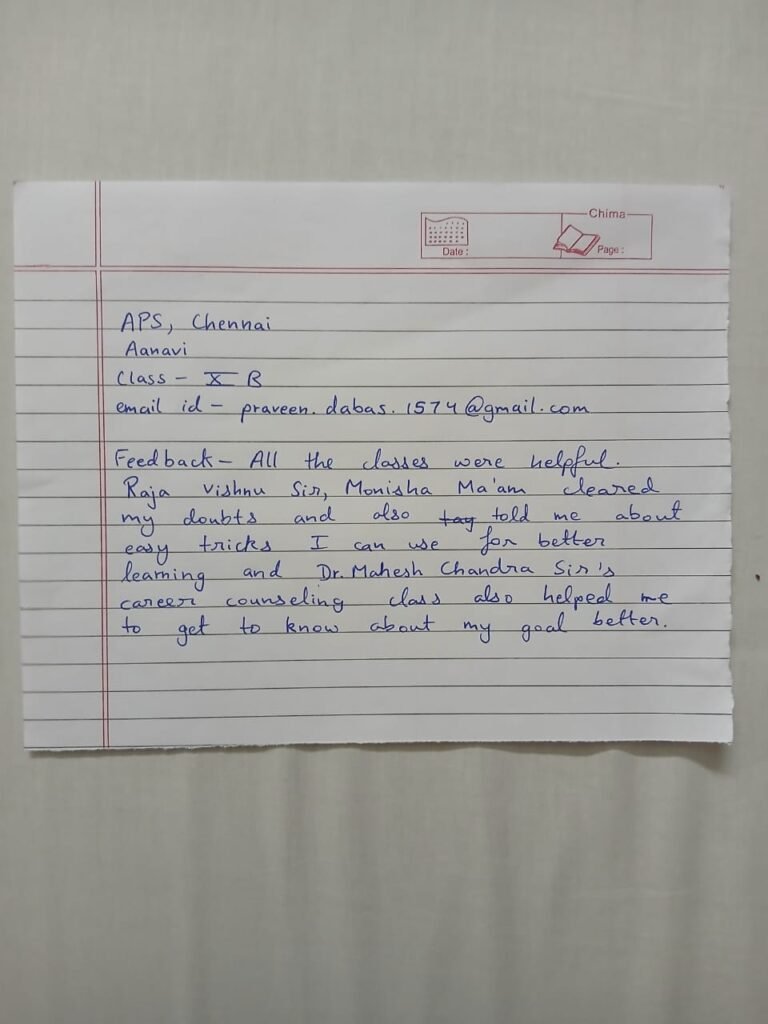 Chima
Date :
Page :
APS, Chennai
Aanavi
Class - X B
email id - praveen.dabas.1574@gmail.com
Feedback - All the classes were helpful.
Raja Vishnu Sir, Monisha Ma'am cleared
my doubts and also told me about
easy tricks I can use for better
learning and Dr. Mahesh Chandra Sir's
career counseling class also helped me
to get to know about my goal better.